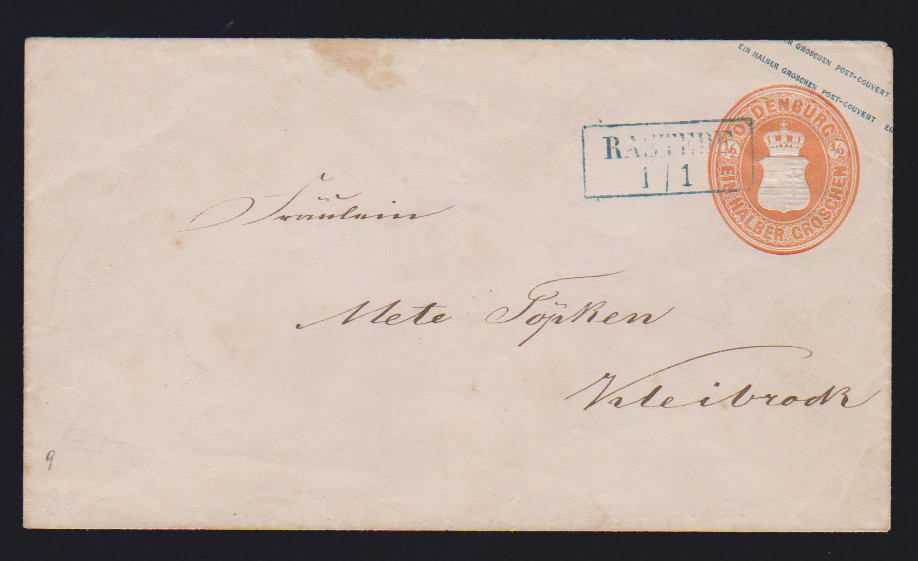 ER GROSCHEN POST-COUVERT
EIN HALBER GROSCHEN POST-COUVERT EI
OLDENBURG
½ ½
EIN HALBER GROSCHEN
RASTEDE
1 / 1
Fräulein
Mete Töpken
Kleibrock
9